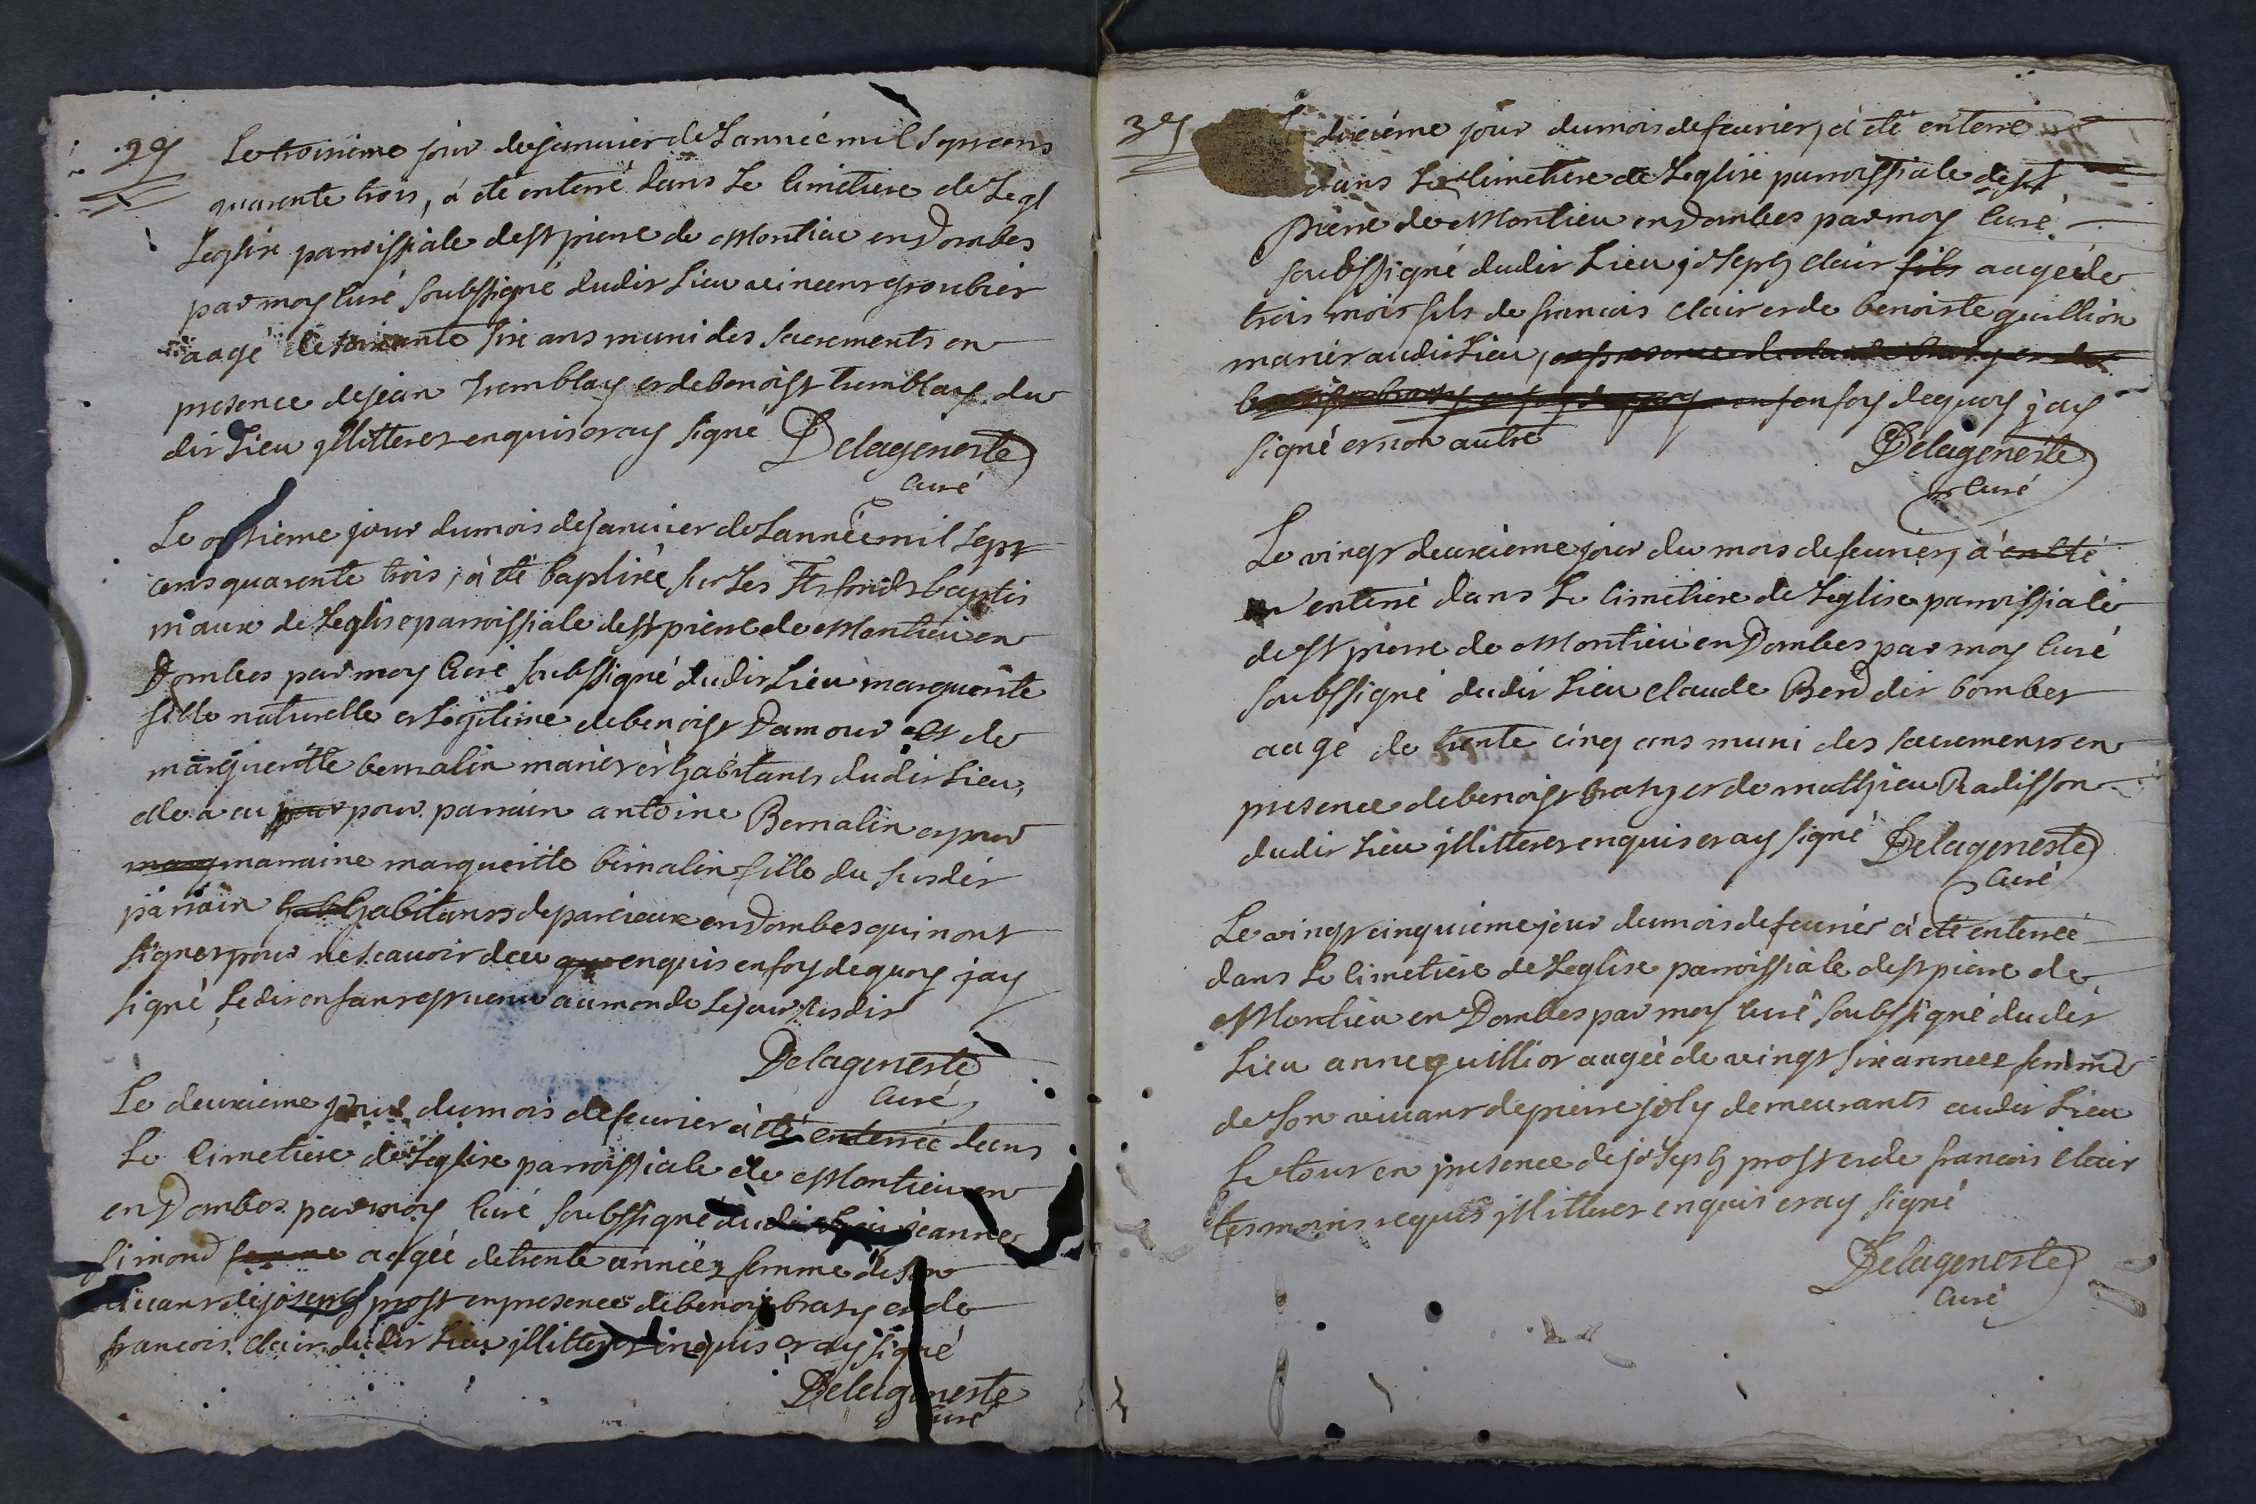 29
Le troisieme jour de janvier de Lannéé mil sept cens
quarente trois, á eté enterré dans Le Cimetiere de Legl
Leglise parroissiale de st pierre de Montieu en Dombes
par moy Curé soubssigné dudit Lieu vincent groubier
aagé de soixante six ans muni des sacrements en
presence de jean tremblay et de benoist tremblay du
dit Lieu jllitteres enquis et ay signé Delageneste
Curé
Le septieme jour du mois de janvier de Lannéé mil sept
cens quarente trois, à eté baptisée sur Les sts fonds baptis
maux de Leglise parroissiale de st pierre de Montieu en
Dombes par moy Curé soubssigné dudit Lieu marguerite
fille naturelle et Legitime de benoist Damour et de
marguerite bernalin mariés et habitants dudit Lieu,
elle a eu pour pour parrain antoine Bernalin et pour
mary marraine marguerite bernalin fille du susdit
parrain hab habitants de parcieux en Dombes qui nont
signes pour ne scavoir deu que enquis en foy de quoy jay
signé, Ledit enfant est venu au monde Le jour susdit
Delageneste
Curé
Le deuxieme jour du mois de fevrier à eté enterrée dans
Le Cimetiere de Leglise parroissiale de Montieu en
en Dombes par moy Curé soubssigné dudit Lieu jeanne
simond femme aagéé de trente annéés femme de son
vivant de joseph prost en presence de benoist brasy et de
francois Clair dudit Lieu jllitteres enquis et ay signé
Delageneste
Curé
3e
dixiéme jour du mois de fevrier, à eté enterré
dans Le Cimetiere de Leglise parroissiale de st
Pierre de Montieu en Dombes par moy Curé
soubssigné dudit Lieu joseph clair fils aagé de
trois mois fils de francois Clair et de benoiste guillion
mariés audit Lieu, en presence de claude brasy et de
benoist brasy en foy de quoy en foy de quoy jay
signé et non autre
Delageneste
Curé
Le vingt deuxiéme jour du mois de fevrier, à eneté
en enterré dans Le Cimetiere de Leglise parroissiale
de st pierre de Montieu en Dombes par moy Curé
soubssigné dudit Lieu Claude Berd dit bombet
aagé de trente cinq ans muni des sacrements en
presence de benoist brasy et de mathieu Radisson
dudit Lieu jllitteres enquis et ay signé Delageneste
Curé
Le vingt cinquiéme jour du mois de fevrier à eté enterréé
dans Le Cimetiere de Leglise parroissiale de st pierre de
Montieu en Dombes par moy Curé soubssigné dudit
Lieu anne guillior aagéé de vingt six annees femme
de son vivant de pierre joly demeurants audit Lieu
Le tout en presence de joseph prost et de francois Clair
tesmoins requis jllitteres enquis et ay signé
Delageneste
Curé